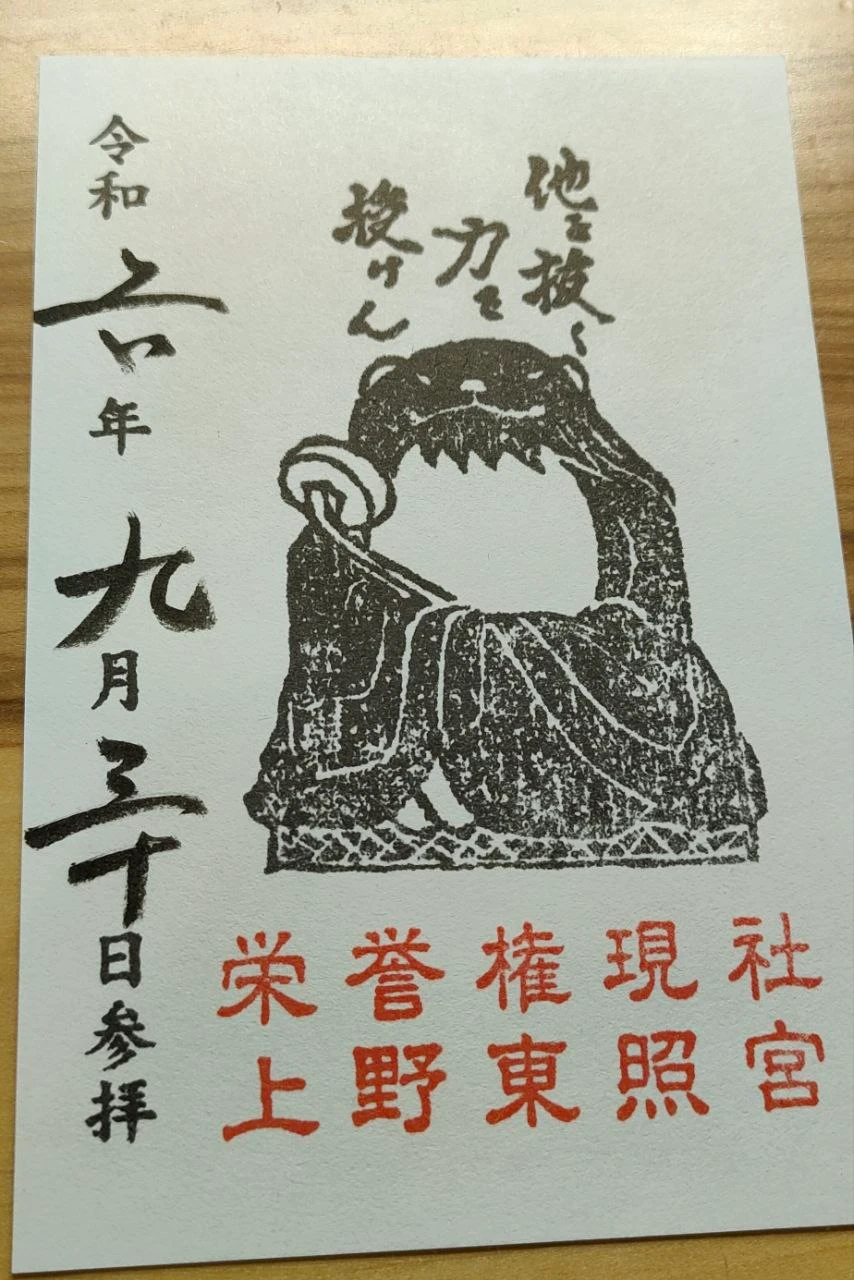 他を抜く
力を
授けん
令和六年九月三十日参拝
栄誉権現社
上野東照宮